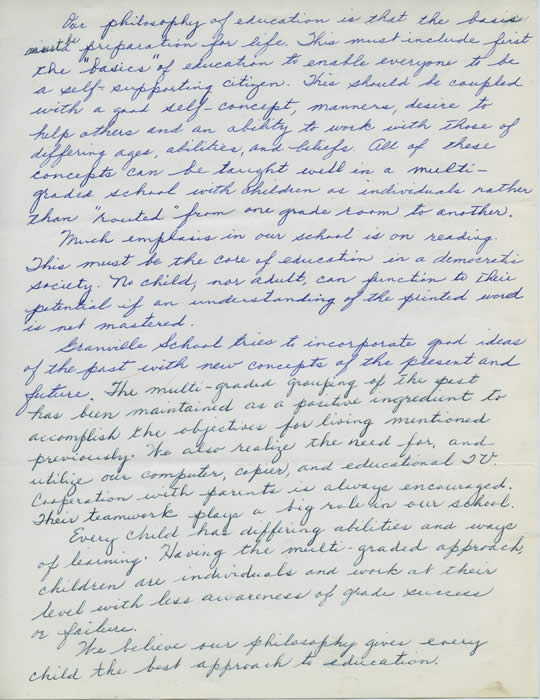 Our philosophy of education is that the basis
must be preparation for life. This must include first
the "basics" of education to enable everyone to be
a self-supporting citizen. This should be coupled
with a good self-concept, manners, desire to
help others and an ability to work with those of
differing ages, abilities, and beliefs. All of these
concepts can be taught well in a multi-
graded school with children as individuals rather
than "routed" from one grade room to another.
Much emphasis in our school is on reading.
This must be the core of education in a democratic
society. No child, nor adult, can function to their
potential if an understanding of the printed word
is not mastered.
Granville School tries to incorporate good ideas
of the past with new concepts of the present and
future. The multi-graded grouping of the past
has been maintained as a positive ingredient to
accomplish the objectives for living mentioned
previously. We also realize the need for, and
utilize our computer, copier, and educational TV.
Cooperation with parents is always encouraged.
Their teamwork plays a big role in our school.
Every child has differing abilities and ways
of learning. Having the multi-graded approach,
children are individuals and work at their
level with less awareness of grade success
or failure.
We believe our philosophy gives every
child the best approach to education.